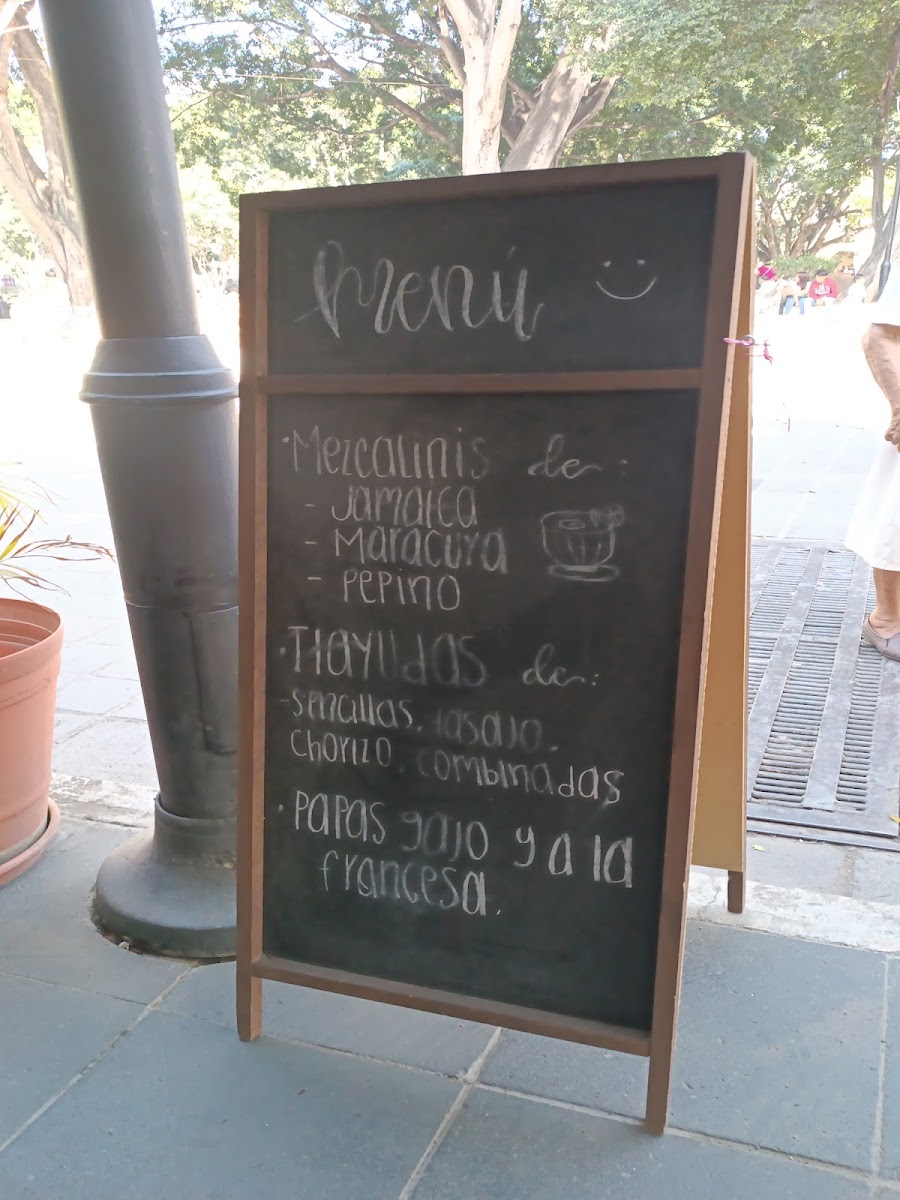 Menú
· Mezcalinis de:
- Jamaica
- Maracuya
- Pepino
· Tlayudas de:
- sencillas, tasajo,
chorizo, combinadas
· Papas gajo y a la
francesa.